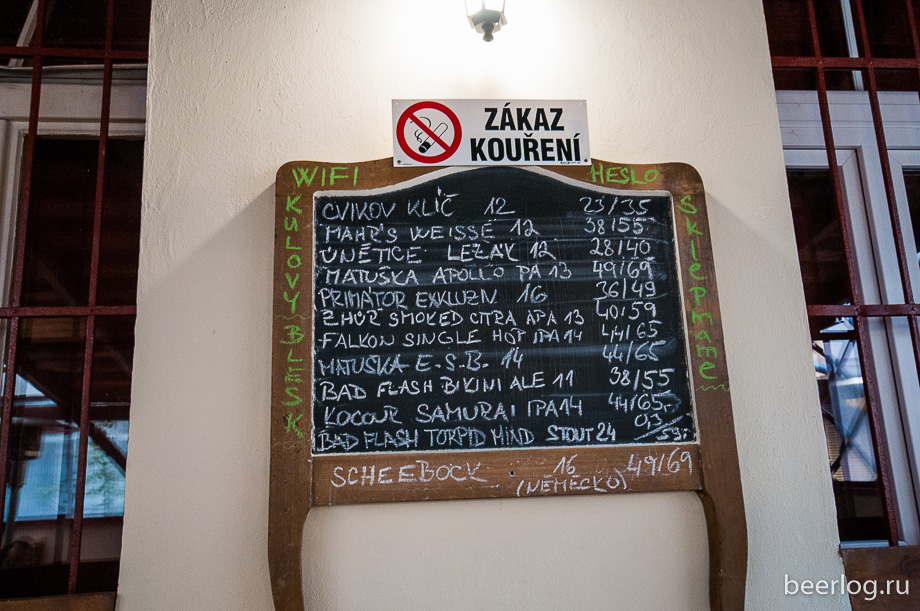 ZÁKAZ
KOUŘENÍ
WIFI
HESLO
KULOVÝ BLESK
Sklepmame
CVIKOV KLÍČ 12 23/35
MAHR'S WEISSE 12 38/55
ÚNĚTICE LEŽÁK 12 28/40
MATUŠKA APOLLO PA 13 49/69
PRIMÁTOR EXKLUZIV 16 36/49
ZHŮŘ SMOKED CITRA APA 13 40/59
FALKON SINGLE HOP IPA 14 44/65
MATUŠKA E.S.B. 14 44/65
BAD FLASH BIKINI ALE 11 38/55
KOCOUR SAMURAI IPA 14 44/65,-
BAD FLASH TORPID MIND STOUT 24 0,3 59,-
SCHEEBOCK 16 49/69
(NĚMECKO)
beerlog.ru